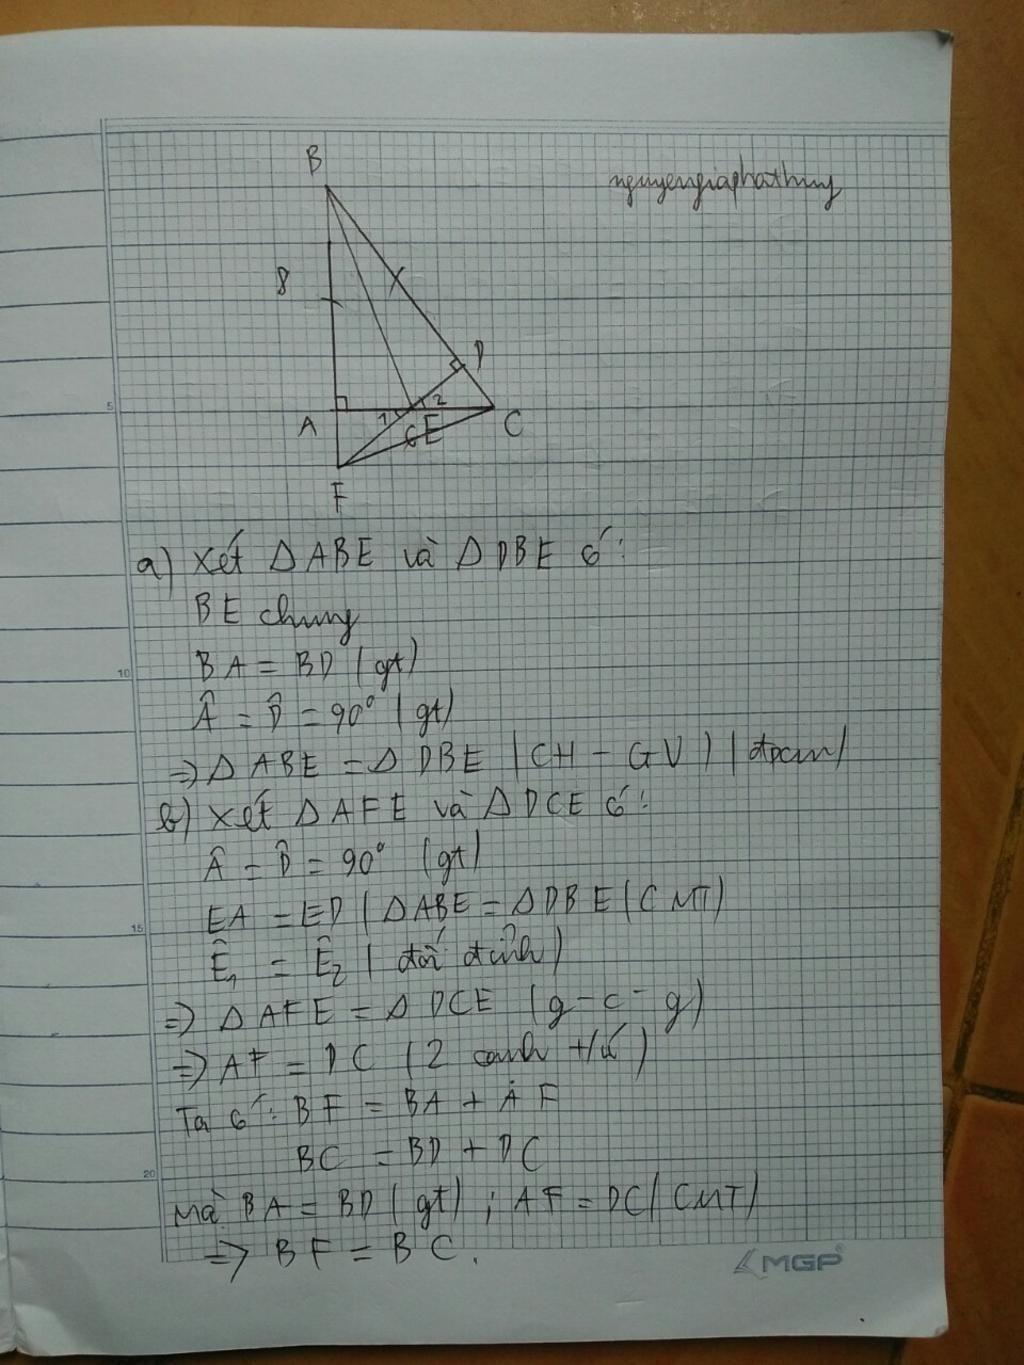 nguyengiaphathuy
B
8
D
A
1
2
6
E
C
F
5
a) Xét Δ ABE và Δ DBE có:
BE chung
10
BA = BD (gt)
Â = D̂ = 90° (gt)
=> Δ ABE = Δ DBE (CH - GV) (đpcm)
b) Xét Δ AFE và Δ DCE có:
Â = D̂ = 90° (gt)
15
EA = ED (Δ ABE = Δ DBE (CMT)
Ê₁ = Ê₂ (đối đỉnh)
=> Δ AFE = Δ DCE (g-c-g)
=> AF = DC (2 cạnh t/ứ)
Ta có: BF = BA + AF
BC = BD + DC
20
Mà BA = BD (gt) ; AF = DC (CMT)
=> BF = BC.
MGP